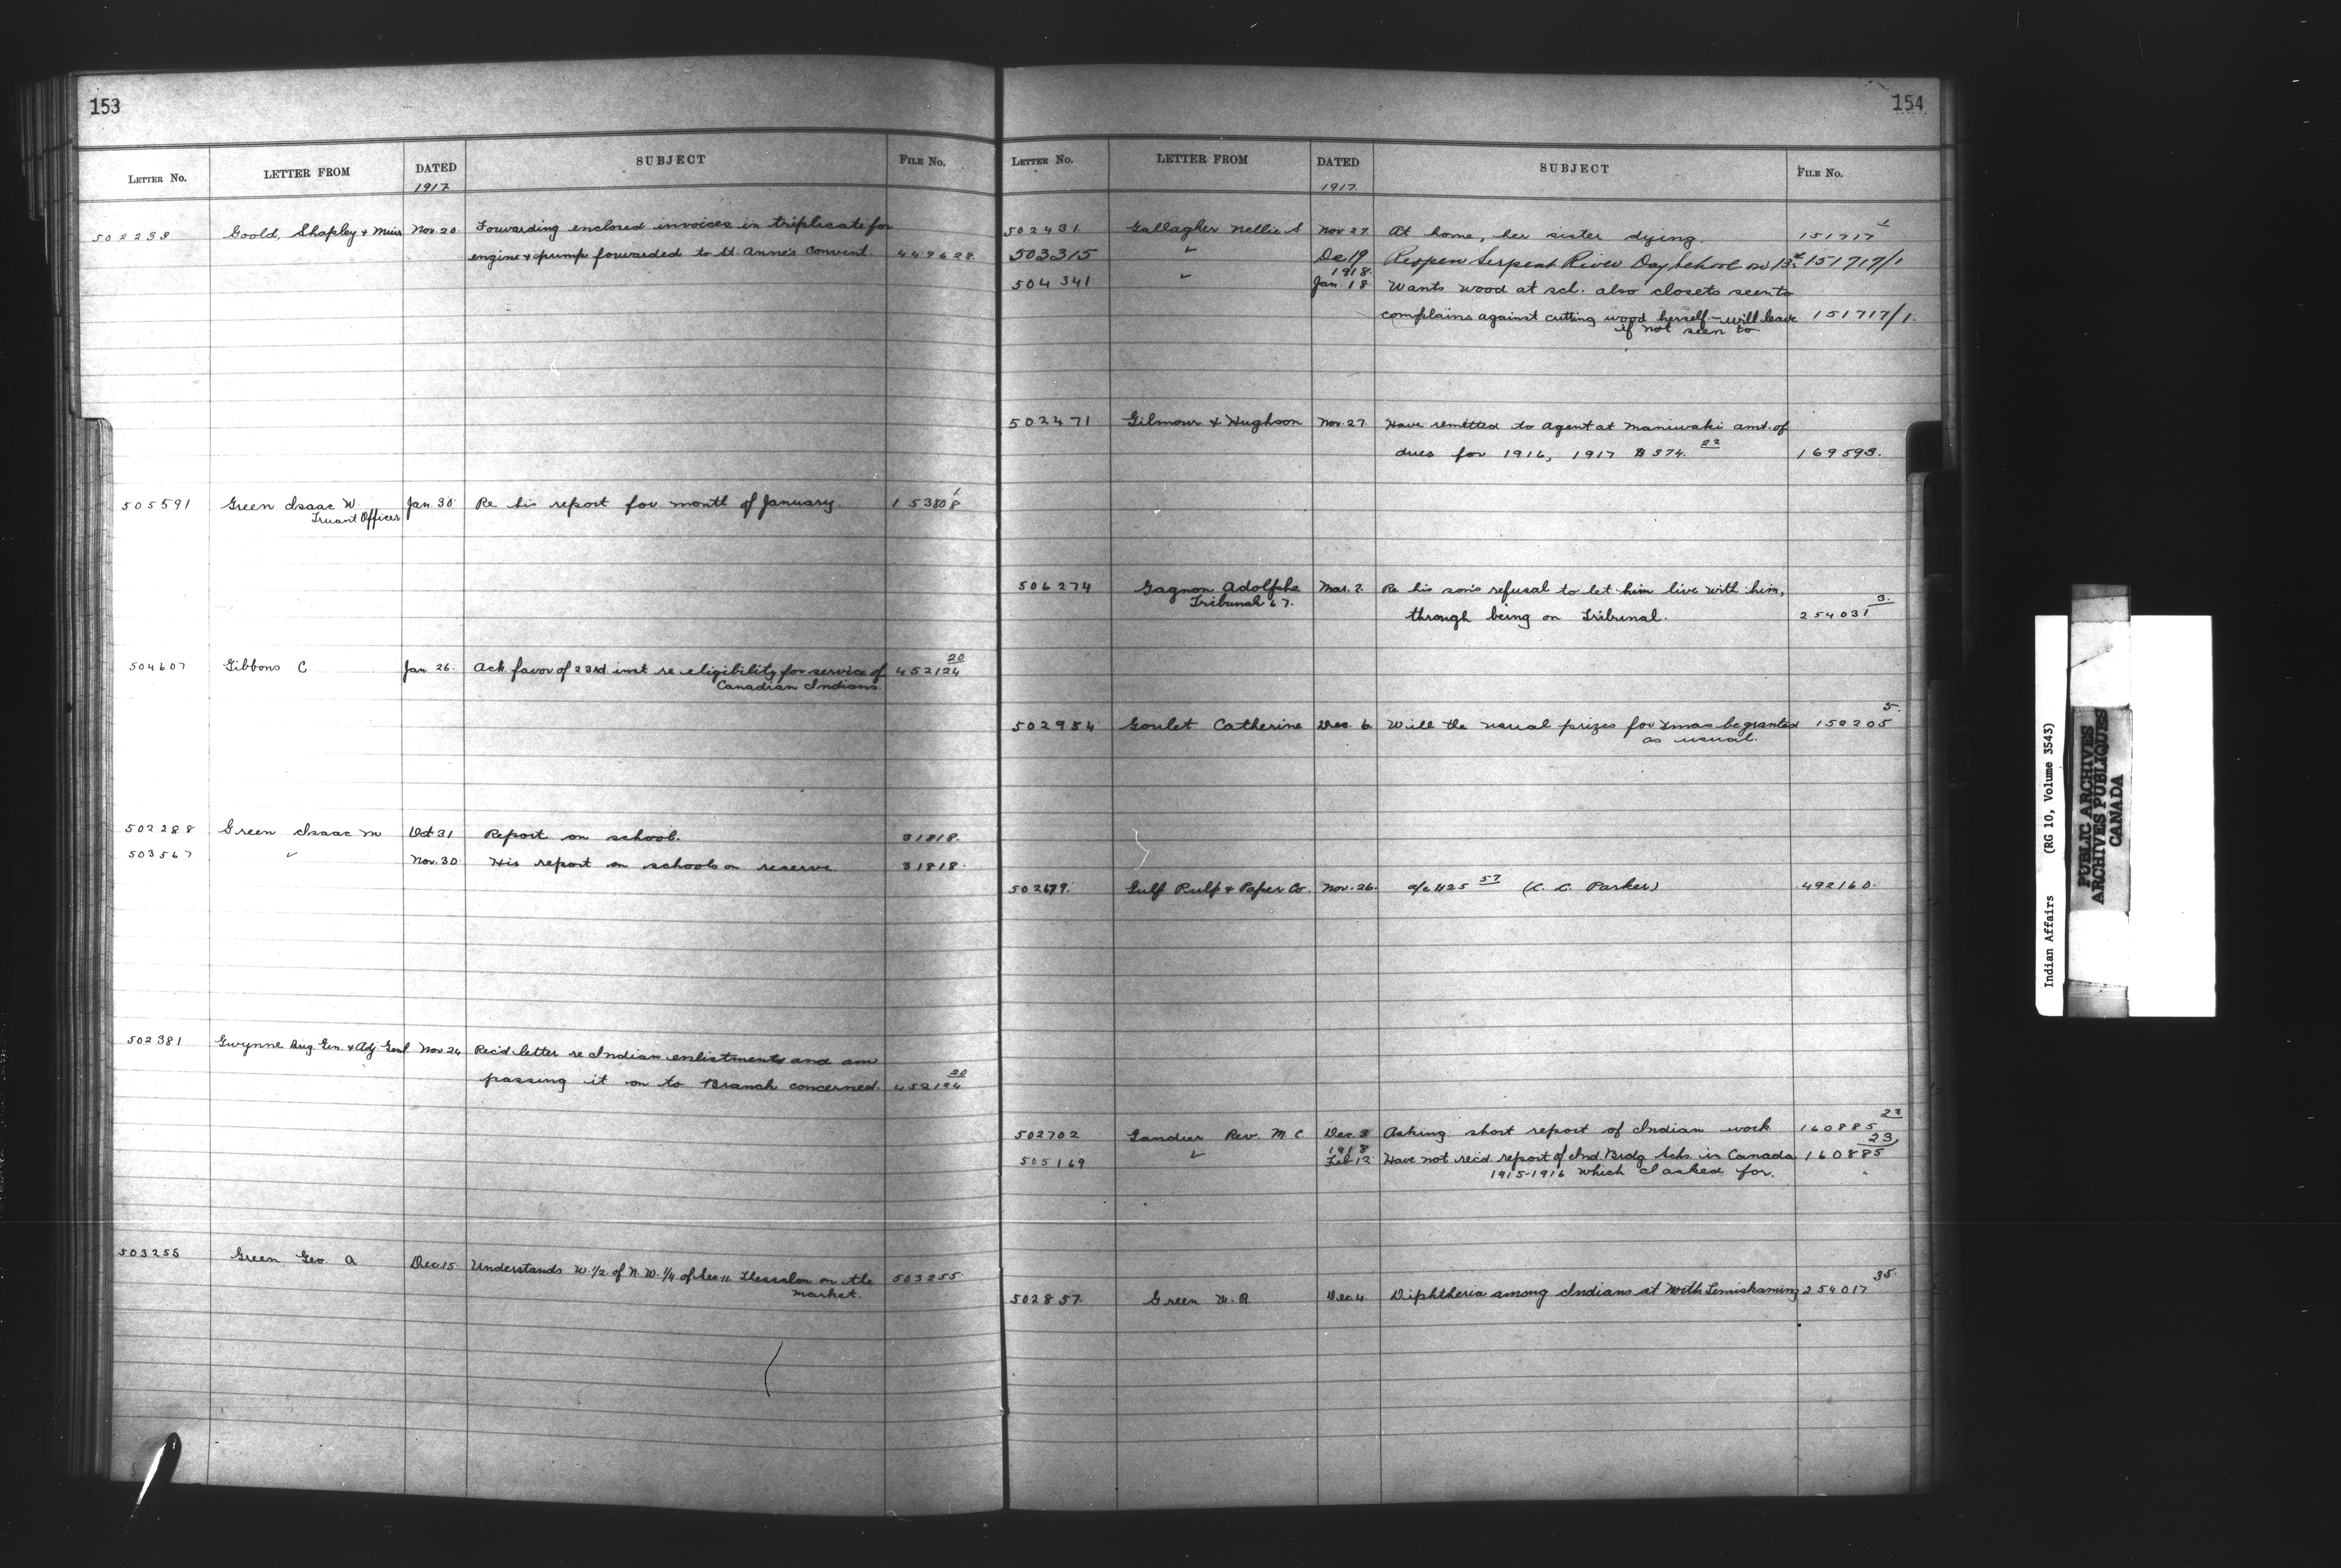 153
LETTER No. LETTER FROM DATED SUBJECT FILE No.
1917
502238 Goold, Shapley & Muir Nov. 20 Forwarding enclosed invoices in triplicate for
engine & pump forwarded to St. Anne's Convent. 449628
505591 Green Isaac W. Jan. 30 Re his report for month of January. 153808 1
Truant Officer
504607 Gibbons C Jan 26. Ack. favor of 23rd. inst re eligibility for service of 452124 20
Canadian Indians.
502288 Green Isaac M Oct 31 Report on school. 31818.
503567 " Nov. 30 His report on schools on reserve 31818.
502381 Gwynne Brig. Gen. & Adj Genl Nov 24 Rec'd letter re Indian enlistments and am
passing it on to Branch concerned. 452124 20
503255 Green Geo. A Dec. 15 Understands W. 1/2 of N. W. 1/4 of Sec. 11 Thessalon on the 503255
market.
154
LETTER No. LETTER FROM DATED SUBJECT FILE No.
1917.
502431 Gallagher Nellie S Nov 27 At home, her sister dying. 151717 1
503315 " Dec 19 Reopen Serpent River Day School on 13th 151717/1
1918.
504341 " Jan. 18 Wants wood at sch. also closets seen to
complains against cutting wood herself - will leave 151717/1.
if not seen to.
502471 Gilmour & Hughson Nov. 27. Have remitted to Agent at Maniwaki amt. of
dues for 1916, 1917 $374. 22 169593.
506274 Gagnon Adolphe Mar. 2. Re his son's refusal to let him live with him,
Tribunal 67. 3.
through being on Tribunal. 254031
502954 Goulet Catherine Dec. 6. Will the usual prizes for Xmas be granted 150205 5.
as usual.
502679. Gulf Pulp & Paper Co. Nov. 26. a/c $125 57 (C. C. Parker) 492160.
502702 Gandier Rev. M C Dec. 3 Asking short report of Indian work 160885 23
1918
505169 " Feb 12 Have not rec'd report of Ind. Brdg Schs. in Canada 160885 23
1915-1916 which I asked for.
502857. Green W. R. Dec. 4. Diphtheria among Indians at North Temiskaming 254017 35.
Indian Affairs (RG 10, Volume 3543)
PUBLIC ARCHIVES
ARCHIVES PUBLIQUES
CANADA